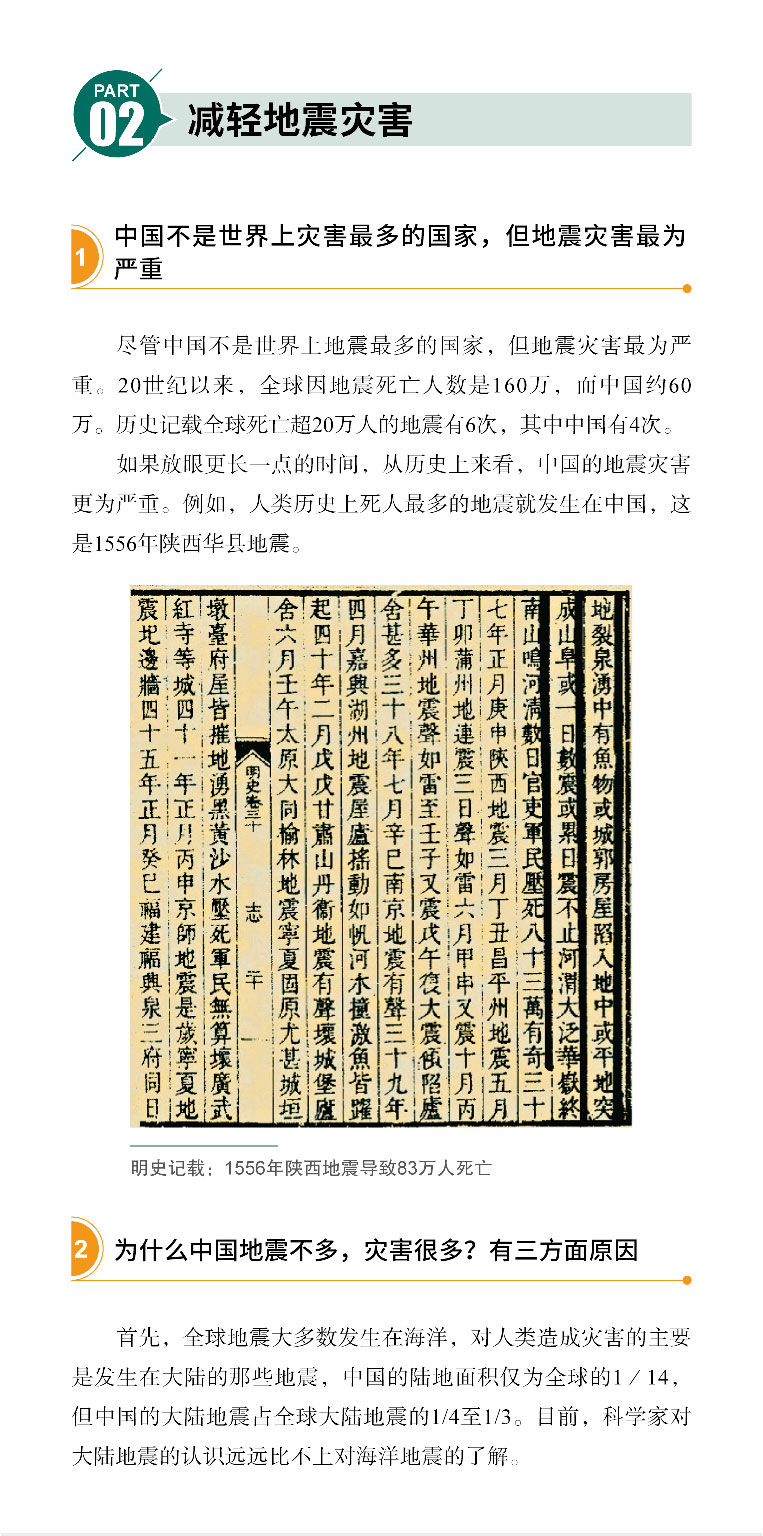 PART
02
减轻地震灾害
1
中国不是世界上灾害最多的国家，但地震灾害最为
严重
尽管中国不是世界上地震最多的国家，但地震灾害最为严
重。20世纪以来，全球因地震死亡人数是160万，而中国约60
万。历史记载全球死亡超20万人的地震有6次，其中中国有4次。
如果放眼更长一点的时间，从历史上来看，中国的地震灾害
更为严重。例如，人类历史上死人最多的地震就发生在中国，这
是1556年陕西华县地震。
地裂泉湧中有魚物或城郭房屋陷入地中或平地突
成山阜或一日數震或累日震不止河渭大泛華嶽終
南山鳴河清數日官吏軍民壓死八十三萬有奇三十
七年正月庚申陝西地震三月丁丑昌平州地震五月
丁卯蒲州地連震三日聲如雷六月甲申又震十月丙
午華州地震聲如雷至壬子又震戊午復大震傾陷廬
舍甚多三十八年七月辛巳南京地震有聲三十九年
四月嘉興湖州地震屋廬搖動如帆河水撞激魚皆躍
起四十年二月戊戌甘肅山丹衞地震有聲壞城堡廬
舍六月壬午太原大同榆林地震寧夏固原尤甚城垣
明史卷三十 志
墩臺府屋皆摧地湧黑黃沙水壓死軍民無算壞廣武
紅寺等城四十一年正月丙申京師地震是歲寧夏地
震圮邊牆四十五年正月癸巳福建福興泉三府同日
明史记载：1556年陕西地震导致83万人死亡
2
为什么中国地震不多，灾害很多？有三方面原因
首先，全球地震大多数发生在海洋，对人类造成灾害的主要
是发生在大陆的那些地震，中国的陆地面积仅为全球的1／14，
但中国的大陆地震占全球大陆地震的1/4至1/3。目前，科学家对
大陆地震的认识远远比不上对海洋地震的了解。